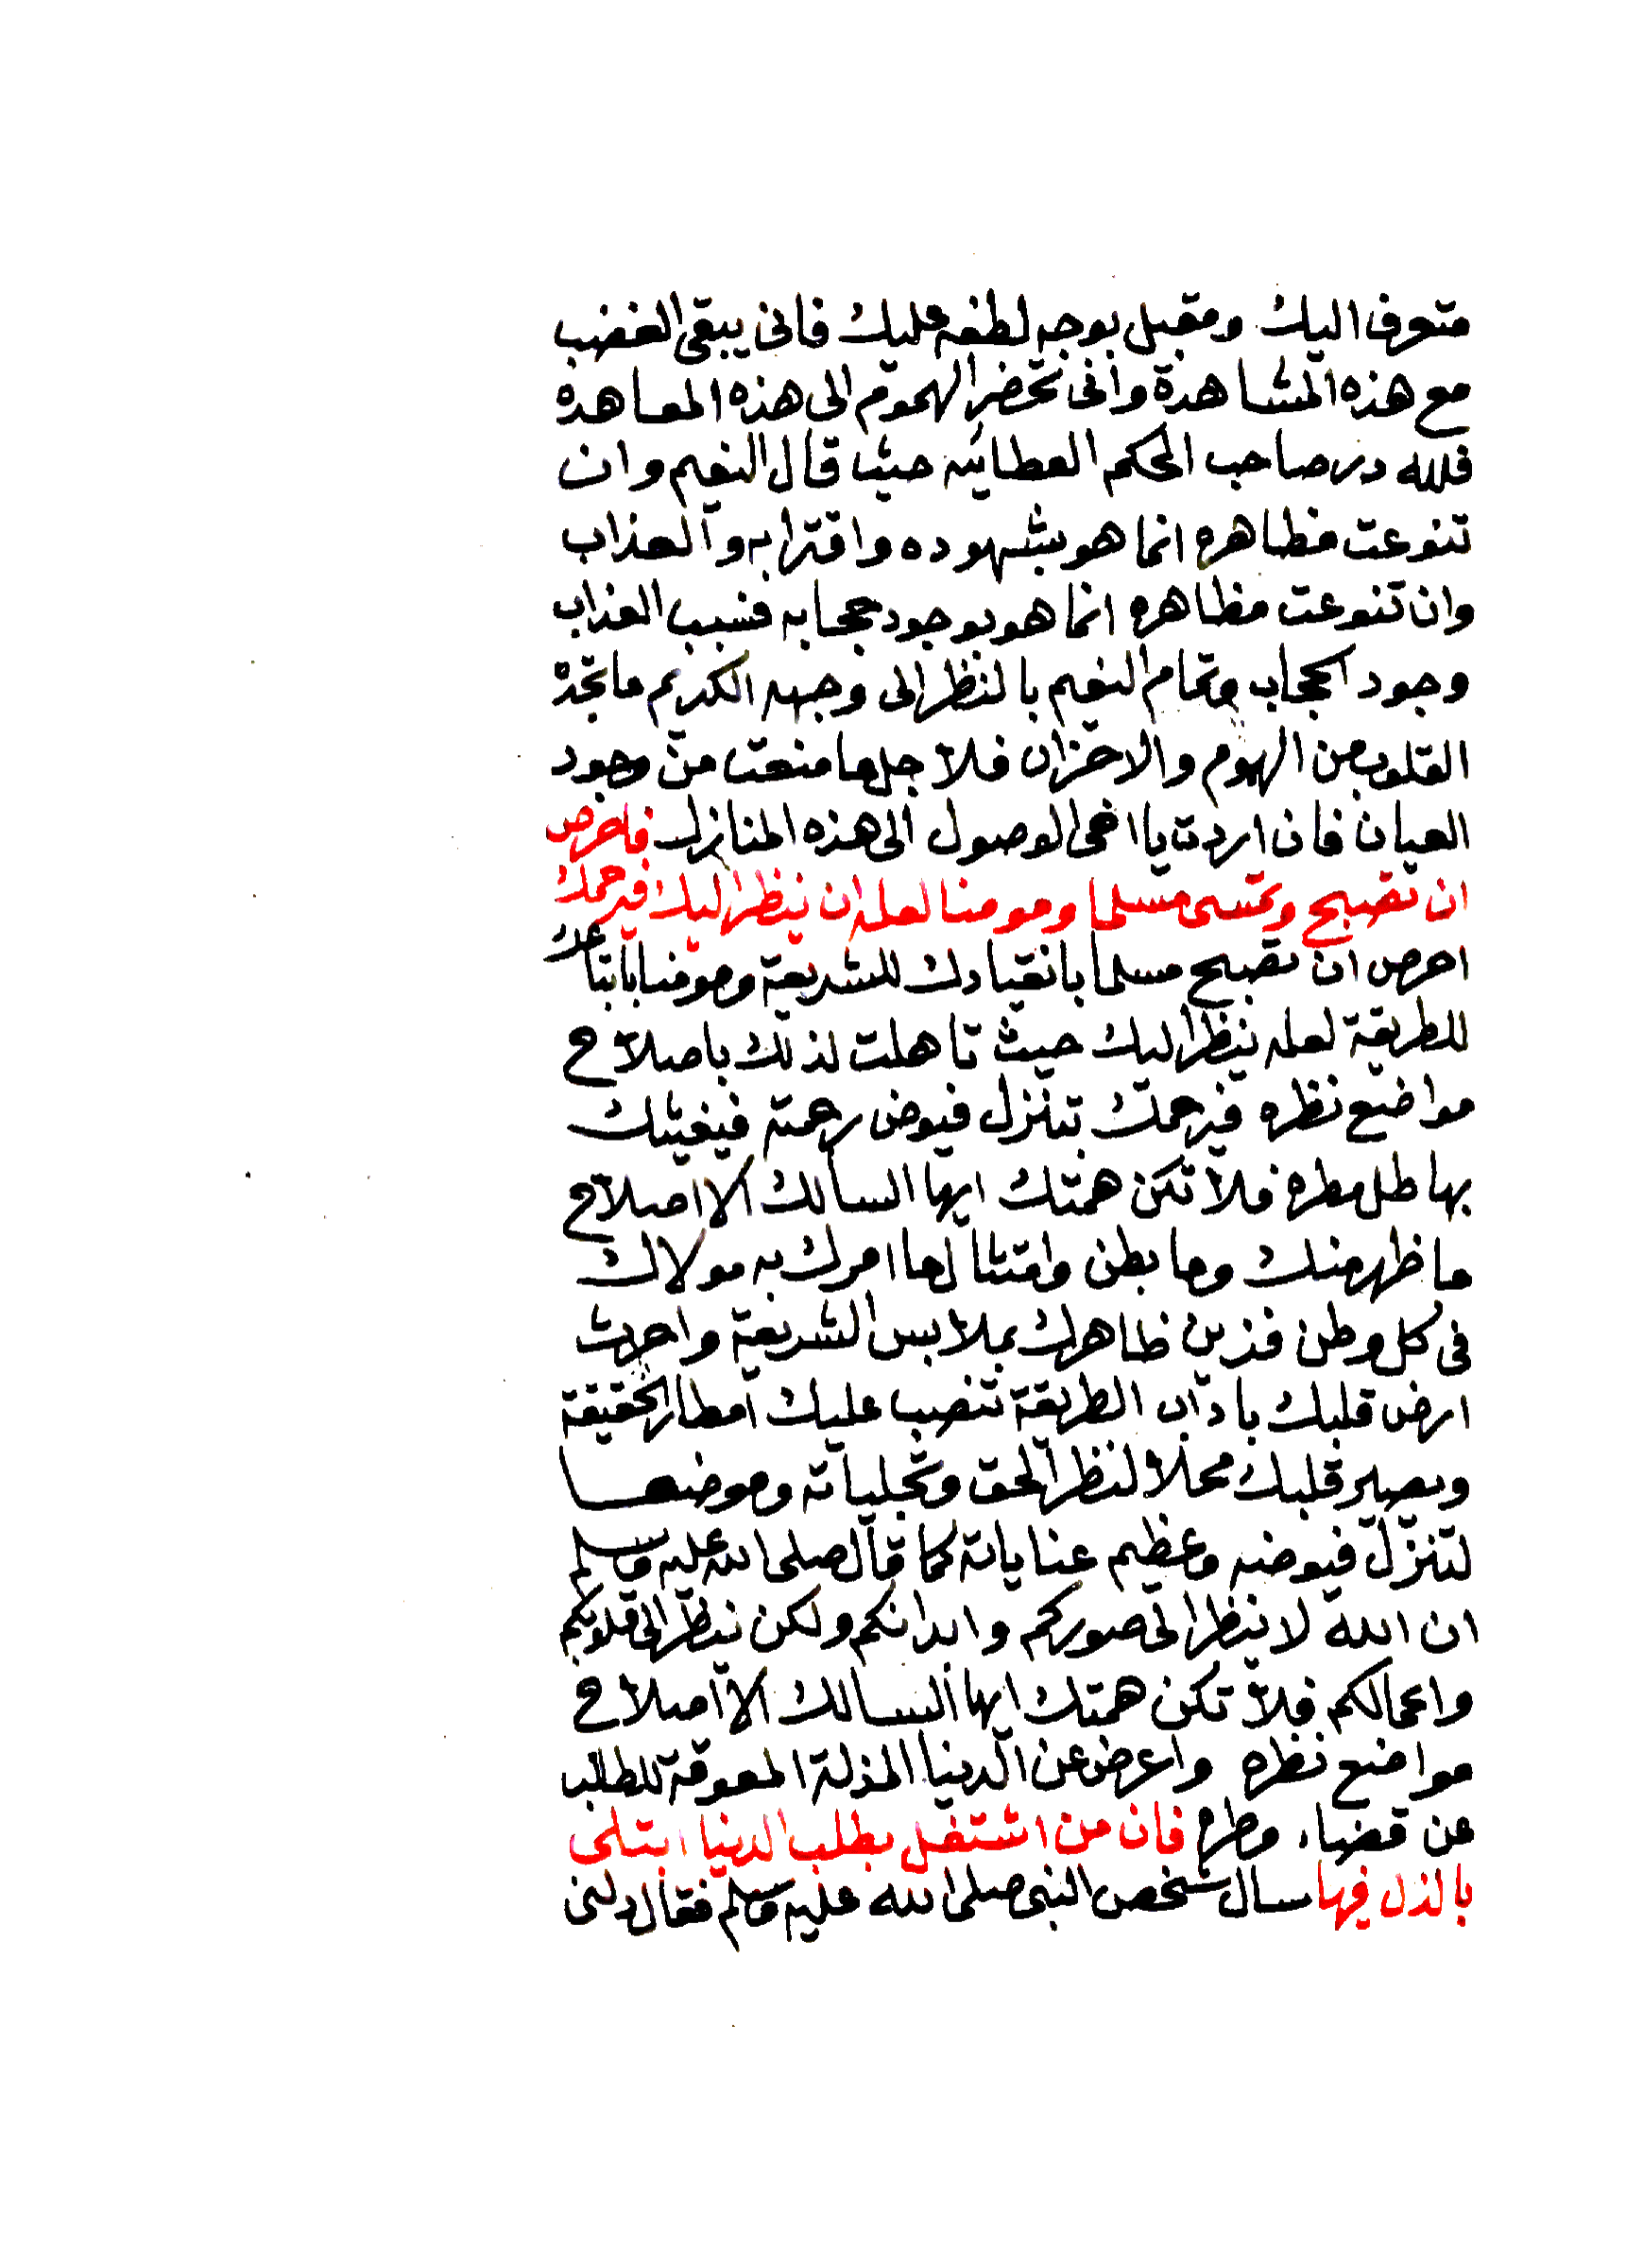 متعرف اليك ومقبل بوجه لطفه عليك فانى يبقى الغضب
مع هذه المشاهدة وانى تحضر الهموم الى هذه المعاهده
فلله در صاحب الحكم العطائيه حيث قال النعيم وان
تنوعت مظاهره انما هو بشهوده واقترابه والعذاب
وان تنوعت مظاهره انما هو بوجود حجابه فسبب العذاب
وجود الحجاب وتمام النعيم بالنظر الى وجهه الكريم ما تجده
القلوب من الهموم والاحزان فلاجل ما منعت من وجود
العيان فان اردت يا اخى الوصول الى هذه المنازل فاحرص
ان تصبح وتمسى مسلما ومومنا لعله ان ينظر اليك فيرحمك
احرص ان تصبح مسلما بانقيادك للشريعة ومومنا باتباعك
للطريقة لعله ينظر اليك حيث تاهلت لذلك باصلاح
مواضع نظره فيرحمك بتنزل فيوض رحمته فيغيثك
بها طل مطره فلا تكن همتك ايها السالك الا اصلاح
ما ظهر منك وما بطن وامتثال ما امرك به مولاك
فى كل وطن فزين ظاهرك بملابس الشريعة واحرث
ارض قلبك باداب الطريقة تنصب عليك امطار الحقيقة
ويصير قلبك محلا لنظر الحق وتجلياته وموضعا
لتنزل فيوضه وعظيم عناياته كما قال صلى الله عليه وسلم
ان الله لا ينظر الى صوركم وابدانكم ولكن ينظر الى قلوبكم
واعمالكم فلا تكن همتك ايها السالك الا اصلاح
مواضع نظره واعرض عن الدنيا المذلة المعوقة للطالب
عن قضاء وطره فان من اشتغل بطلب الدنيا ابتلى
بالذل فيها سال شخص النبى صلى الله عليه وسلم فقال دلنى